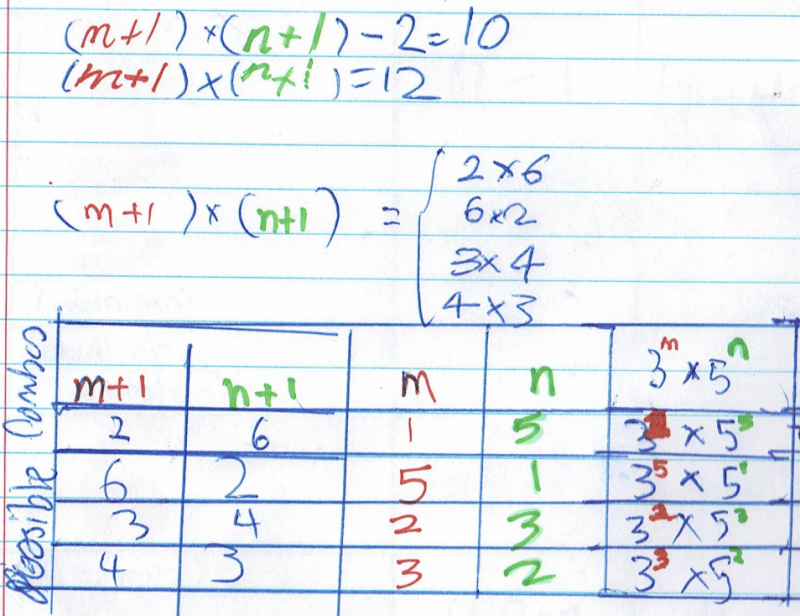 (m+1) × (n+1) - 2 = 10
(m+1) × (n+1) = 12
(m+1) × (n+1) = { 2×6
6×2
3×4
4×3
Possible Combos
m+1 n+1 m n 3^m × 5^n
2 6 1 5 3 × 5^5
6 2 5 1 3^5 × 5^1
3 4 2 3 3^2 × 5^3
4 3 3 2 3^3 × 5^2